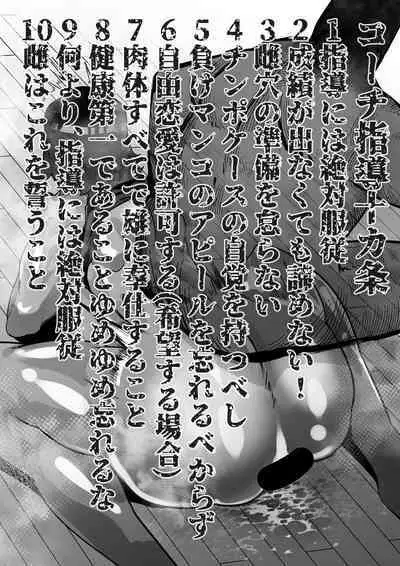 コーチ指導十カ条
1指導には絶対服従
2成績が出なくても諦めない！
3雌穴の準備を怠らない
4チンポケースの自覚を持つべし
5負けマンコのアピールを忘れるべからず
6自由恋愛は許可する(希望する場合)
7肉体すべてで雄に奉仕すること
8健康第一であることゆめゆめ忘れるな
9何より、指導には絶対服従
10雌はこれを誓うこと